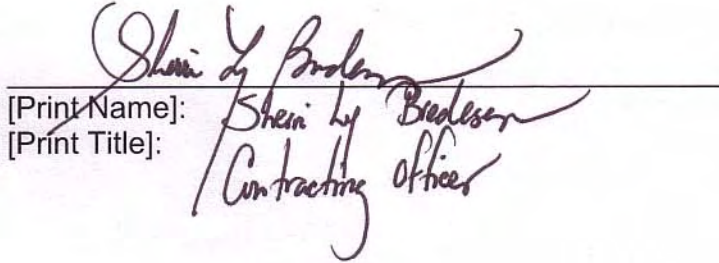 Sherri Ly Bredesen
[Print Name]: Sherri Ly Bredesen
[Print Title]: Contracting Officer